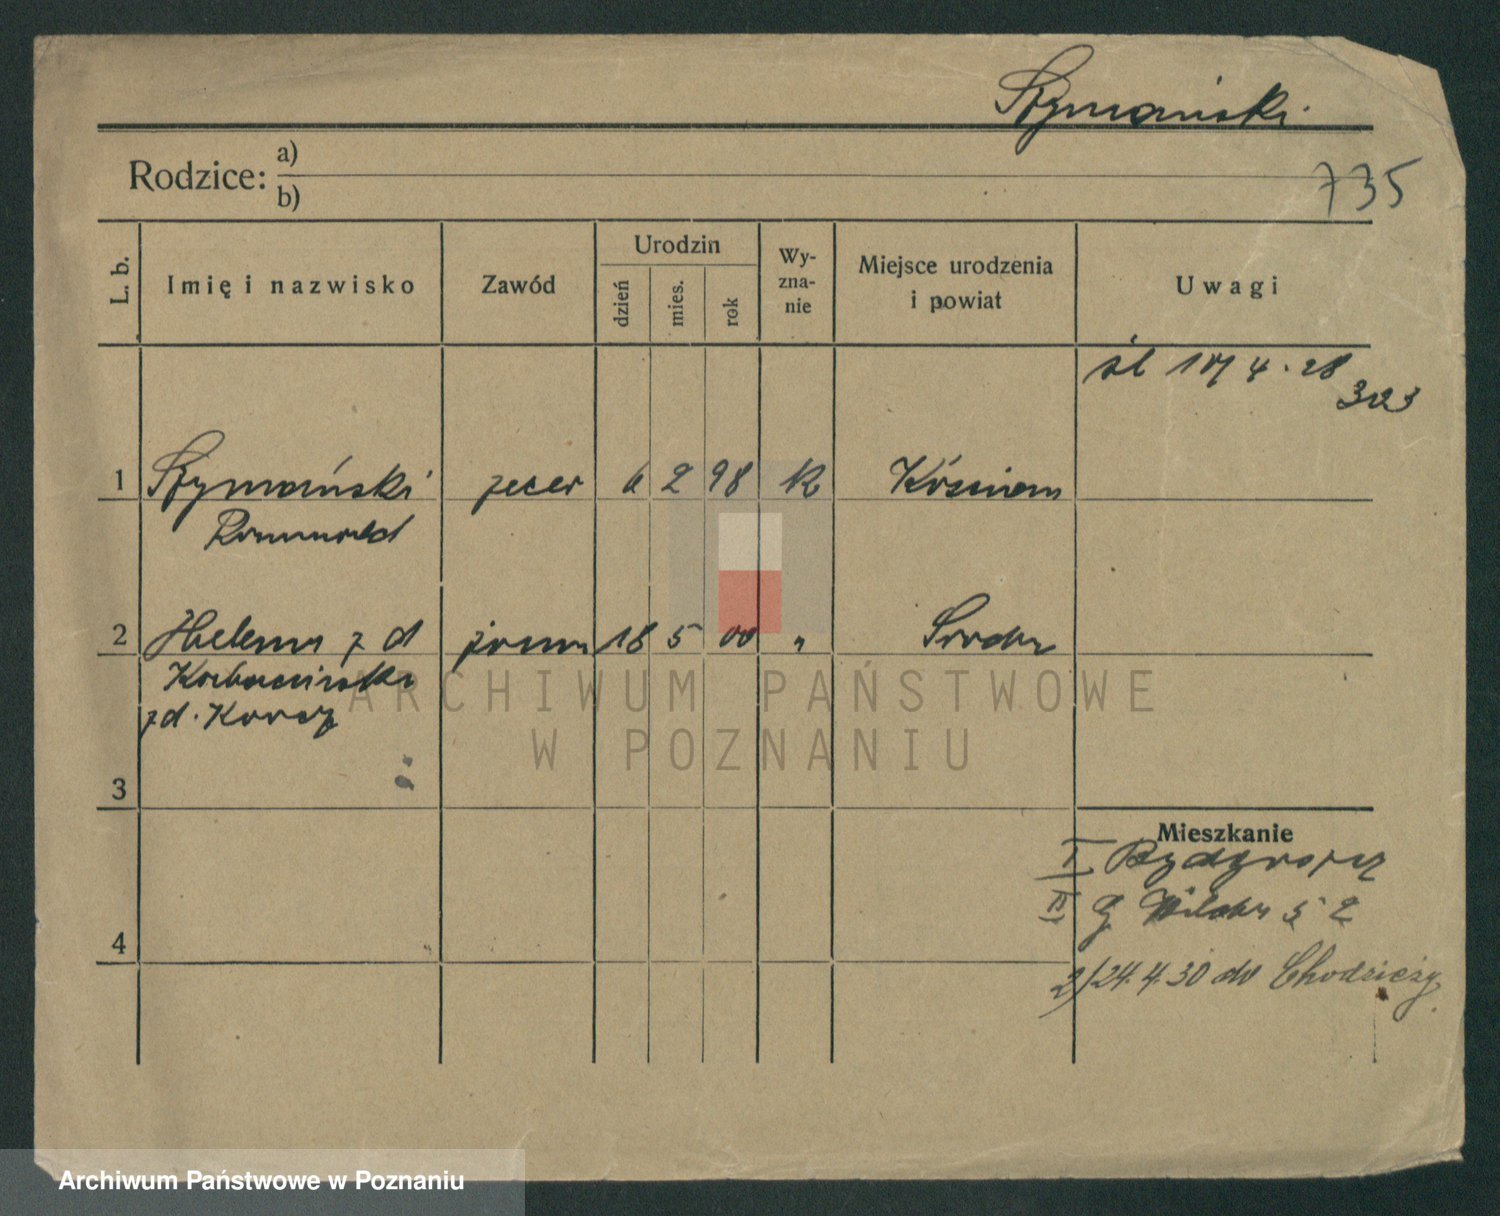 Szymański
Rodzice: a)
b)
735
L. b.
Imię i nazwisko
Zawód
Urodzin
dzień
mies.
rok
Wy-
zna-
nie
Miejsce urodzenia
i powiat
Uwagi
śl 4.28
1 Szymański zecer 6 2 98 R
Romuald
2 Helena z d żona 18 5 00 " Środa
zd.
3
Mieszkanie
I Bydgoszcz
II G Wilda 5 2
4
2/24.4.30 do Chodzieży.
ARCHIWUM PAŃSTWOWE
W POZNANIU
Archiwum Państwowe w Poznaniu